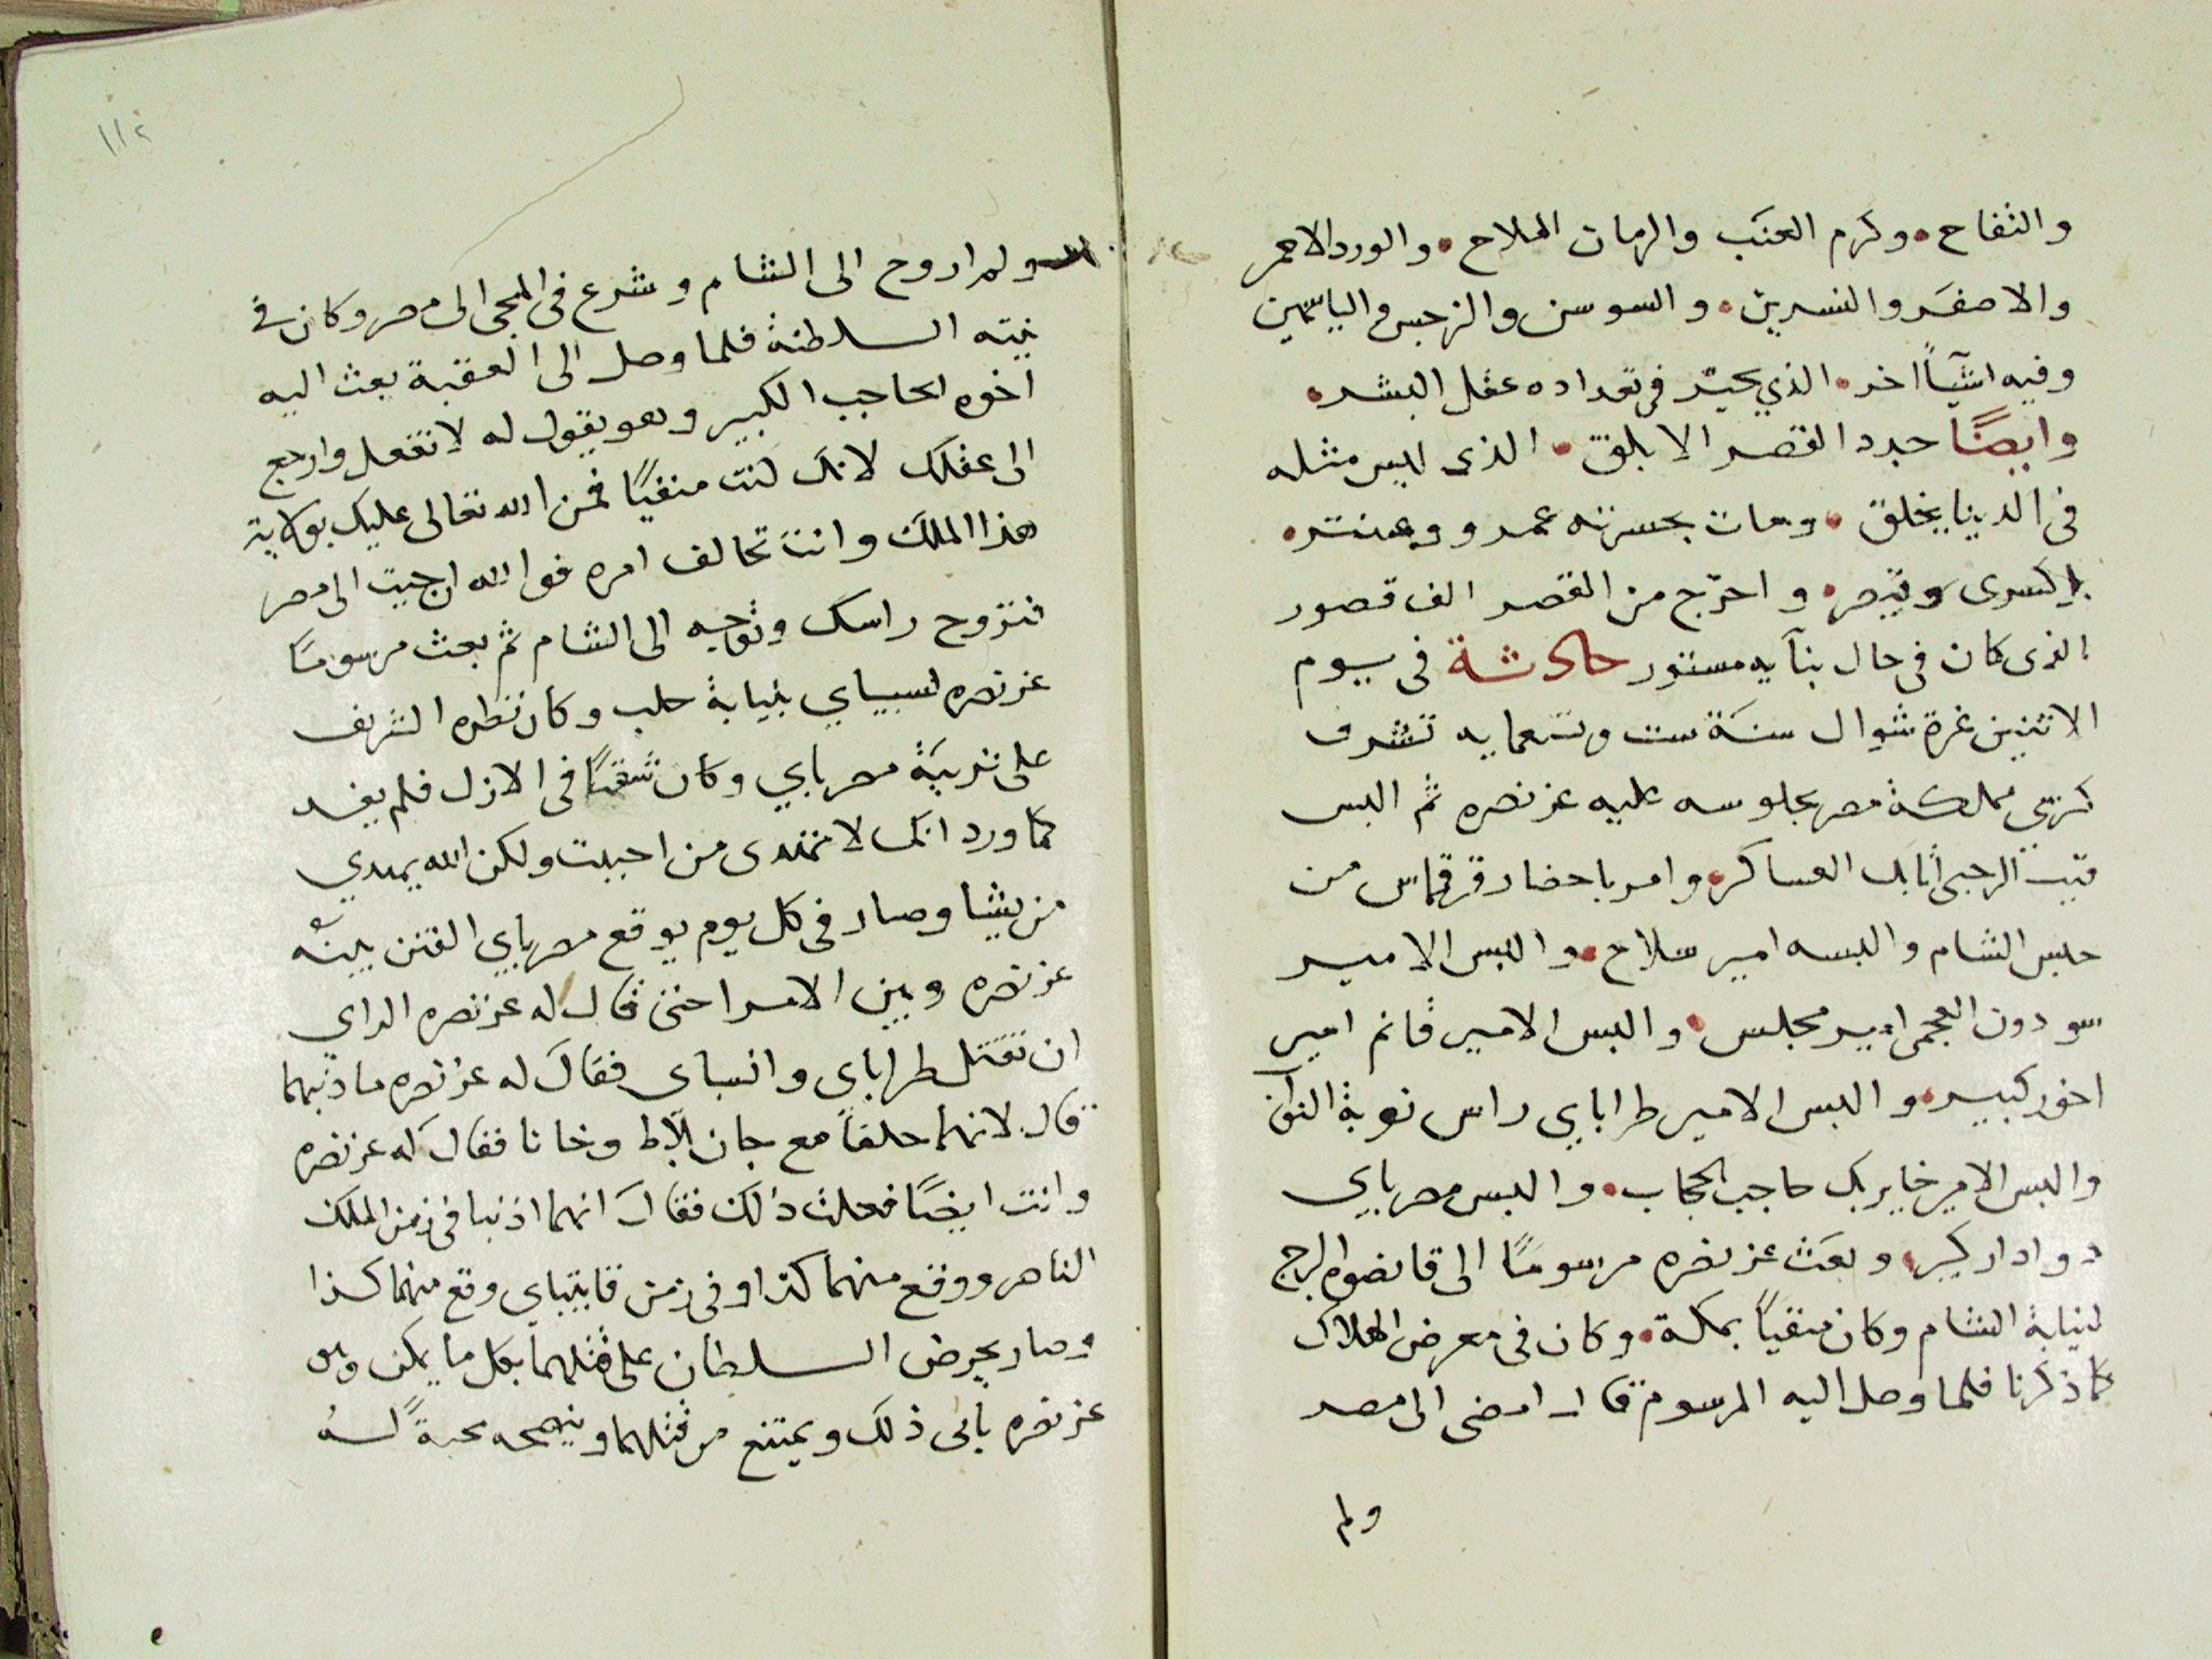 والتفاح • وكرم العنب والرمان الملاح • والورد الاحمر
والاصفر والنسرين • والسوسن والنرجس والياسمين
وفيه اشيآء اخر • الذي يحير في تعداده عقل البشر •
وايضًا جدد القصر الابلق • الذى ليس مثله
في الدنيا يخلق • ومات بحسرته عمرو وعنتر •
كسرى وقيصر • واخرج من القصر الف قصور
الذى كان في حال بنآيه مستور حادثة في يوم
الاثنين غرة شوال سنة ست وتسعمايه تشرف
كرسي مملكة مصر بجلوسه عليه عز نصره ثم البس
قيت الرجبى اتابك العساكر • وامر باحضار قرقماس من
حبس الشام والبسه امير سلاح • والبس الامير
سودون العجمى امير مجلس • والبس الامير قانم امير
اخور كبير • والبس الامير طراباي راس نوبة النواب
والبس الامير خاير بك حاجب الحجاب • والبس مصرباي
دوادار كبير • وبعث عز نصره مرسومًا الى قانصوه البرج
لنيابة الشام وكان منفيًا بمكة • وكان في معرض الهلاك
كما ذكرنا فلما وصل اليه المرسوم قال امضى الى مصر
ولم
١١٢
ولم اروح الى الشام وشرع في المجى الى مصر وكان في
نيته السلطنة فلما وصل الى العقبة بعث اليه
اخوه الحاجب الكبير وهو يقول له لا تفعل وارجع
الى عقلك لانك كنت منفيًا فمن الله تعالى عليك بولاية
هذا الملك وانت تخالف امره فوالله ان جيت الى مصر
تروح راسك وتوجه الى الشام ثم بعث مرسومًا
عز نصره لسيباي بنيابة حلب وكان نظره الشريف
على تربية مصرباي وكان شقيًا في الازل فلم يفد
كما ورد انك لا تهدى من احببت ولكن الله يهدي
من يشا وصار في كل يوم يوقع مصرباي الفتن بينه
عز نصره وبين الامرا حتى قال له عز نصره الراي
ان تقتل طراباي وانسباى فقال له عز نصره ما ذنبهما
قال لانهما حلفا مع جان بلاط وخانا فقال له عز نصره
وانت ايضًا فعلت ذلك فقال انهما اذنبا في زمن الملك
الناصر ووقع منهما كذا وفي زمن قايتباي وقع منهما كذا
وصار يحرض السلطان على قتلهما بكل ما يمكن وهو
عز نصره يابى ذلك ويمتنع من قتلهما وينصحه محبةً له